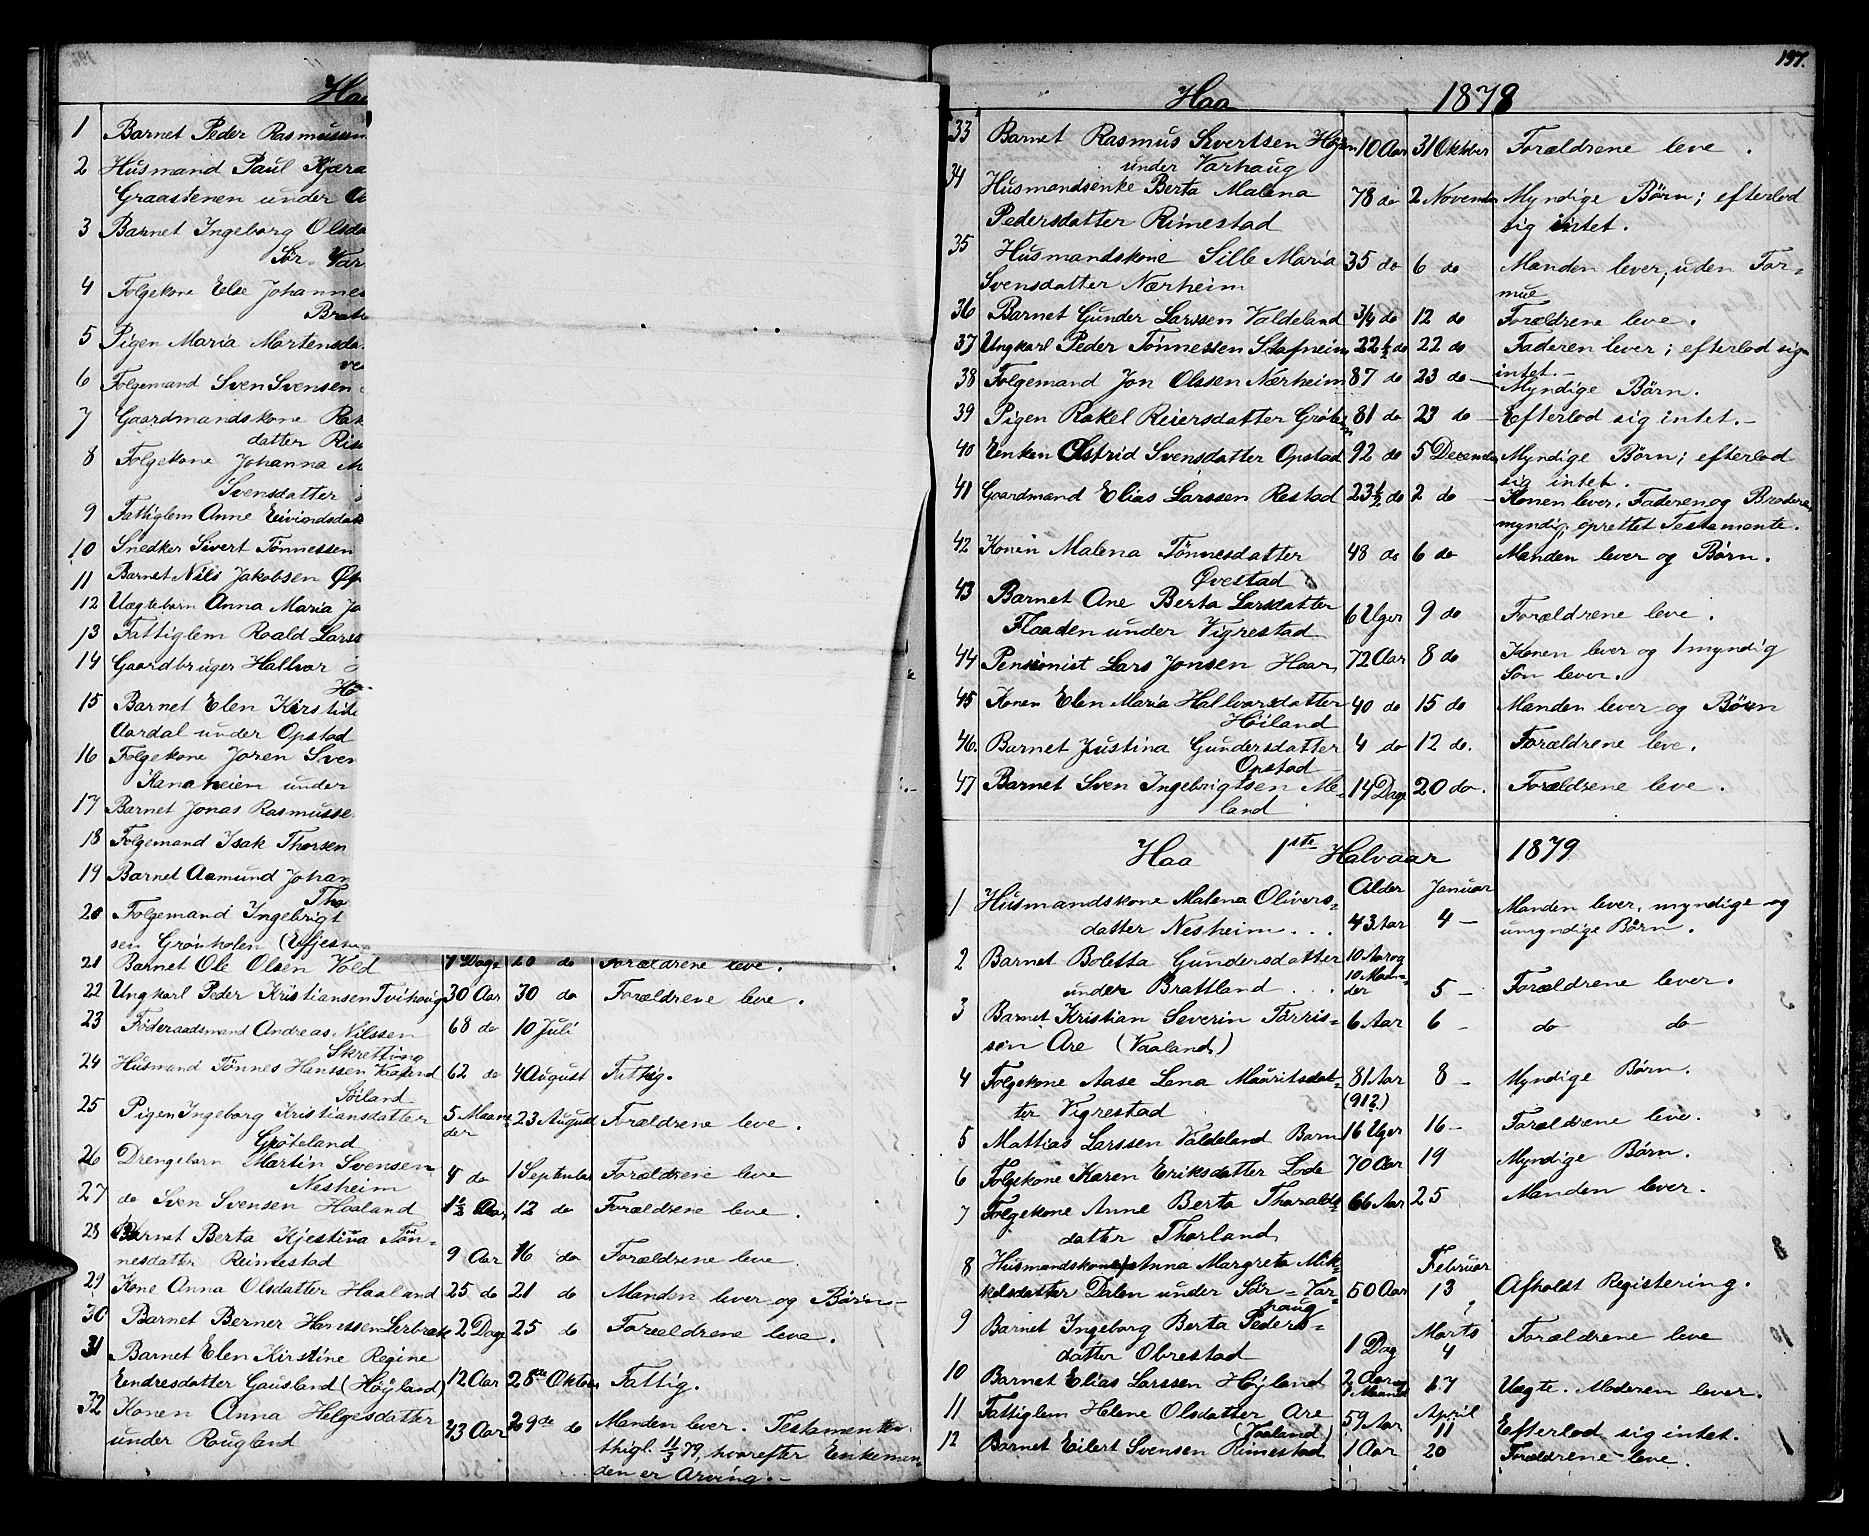 Haa
1 Barnet Peder Rasmussen
2 Husmand Paul Kjæra
Graastenen under
3 Barnet Ingeborg Olsda
Sør Var
4 Folgekone Else Johannes
Bratt
5 Pigen Maria Martensda
6 Folgemand Sven Svensen
7 Gaardmandskone Rak
datter Ris
8 Folgekone Johanna M
Svensdatter
9 Fattiglem Anne Eivindsdat
10 Snedker Sivert Tønnessen
11 Barnet Nils Jakobsen Op
12 Uægtebarn Anna Maria Jo
13 Fattiglem Roald Larss
14 Gaardbruger Hallvar
Ha
15 Barnet Elen Kirstine
Aardal under Opstad
16 Folgekone Joren Sven
Kanaheien under
17 Barnet Jonas Rasmusse
18 Folgemand Isak Thorsen
19 Barnet Aamund Johan
Tho
20 Folgemand Ingebrigt
sen Grønholen
21 Barnet Ole Olsen Vold 7 Dage 20 do Forældrene leve.
22 Ungkarl Peder Kristiansen Tvihaug 30 Aar 30 do Forældrene leve.
23 Føderaadsmand Andreas Nilssen 68 do 10 Juli
Skretting
24 Husmand Tønnes Hanssen Vaaland 62 do 4 August Fattig.
Søiland
25 Pigen Ingeborg Kristiansdatter 5 Maane- 23 August Forældrene leve.
der
Grøteland
26 Drengebarn Martin Svensen 4 do 1 September Forældrene leve
Nesheim
27 do Sven Svensen Haaland 1½ Aar 12 do Forældrene leve.
28 Barnet Berta Kjestina Tøn-
nesdatter Reimestad 9 Aar 16 do Forældrene leve
29 Kone Anna Olsdatter Haaland 25 do 21 do Manden lever og Børn
30 Barnet Berner Hanssen Lerbræk 2 Dage 25 do Forældrene leve.
31 Barnet Elen Kirstine Regine
Endresdatter Gausland (Høyland) 12 Aar 28de Oktober Fattig.
32 Konen Anna Helgesdatter
under Rougland 43 Aar 29de do Manden lever. Testamente
thigl. 11/3 79, hvorefter Enkeman-
den er Arving.-
197.
Haa 1878
33 Barnet Rasmus Sivertsen Høyen 10 Aar 31 Oktober Forældrene leve.
under Varhaug
34 Husmandsenke Berta Malena 78 do 2 November Myndige Børn; efterlod
Pedersdatter Rimestad sig intet.
35 Husmandskone Sille Maria 35 do 6 do Manden lever, uden For-
Svensdatter Nærheim mue
36 Barnet Gunder Larssen Valdeland 3/4 do 12 do Forældrene leve.
37 Ungkarl Peder Tønnessen Stafneim 22½ do 22 do Faderen lever; efterlod sig
intet.-
38 Folgemand Jon Olssen Nærheim 87 do 23 do Myndige Børn.
39 Pigen Rakel Reiersdatter Grøteim 81 do 23 do Efterlod sig intet.-
40 Enken Astrid Svensdatter Opstad 92 do 5 December Myndige Børn; efterlod
sig intet.
41 Gaardmand Elias Larssen Restad 23½ do 2 do Konen lever, Faderen og Brødre
myndig, oprettet Testamente.
42 Konen Malena Tønnesdatter 48 do 6 do Manden lever og Børn.
Øvestad
43 Barnet Ane Berta Larsdatter
Flaaden under Vigrestad 6 Uger 9 do Forældrene leve.
44 Pensionist Lars Jonsen Haar 72 Aar 8 do Konen lever og 1 myndig
Søn lever.
45 Konen Elen Maria Hallvarsdatter 40 do 15 do Manden lever og Børn
Høiland
46. Barnet Justina Gundersdatter 4 do 12 do. Forældrene leve.
Opstad
47 Barnet Sven Ingebrigtsen Me- 14 Dage 20 do. Forældrene leve.
land
Haa 1ste Halvaar 1879
Alder Januar
1 Husmandskone Malena Olivers- Manden lever, myndige og
datter Nesheim . . . 43 Aar 4 - umyndige Børn.
2 Barnet Boletta Gundersdatter 10 Aar og
10 Maane-
under Brattland . . . der 5 - Forældrene lever.
3 Barnet Kristian Severin Torris- 6 Aar 6 - do do
søn Are (Vaaland)
4 Folgekone Aase Lena Mauritsdat- 81 Aar 8 - Myndige Børn.
ter Vigrestad (91?)
5 Mattias Larssen Valdeland Barn 16 Uger 16 - Forældrene leve.
6 Folgekone Karen Eriksdatter Lode 70 Aar 19 Myndige Børn.
7 Folgekone Anne Berta Tharalds- 66 Aar 25 Manden lever.
datter Thorland
Februar
8 Husmandskone Anna Margreta Mik-
kelsdatter Dalen under Sør-Var- 50 Aar 13 Afholdt Registering.
haug
9 Barnet Ingeborg Berta Peders- Marts
datter Obrestad 1 Dag 4 Forældrene leve
10 Barnet Elias Larssen Høyland 2 Aar og 17 Uægte. Moderen lever.
7 Maaned
11 Fattiglem Helene Olsdatter Are 59 Aar April 11 Efterlod sig intet.
(Vaaland)
12 Barnet Eilert Svensen Rimestad 1 Aar 20 Forældrene leve.